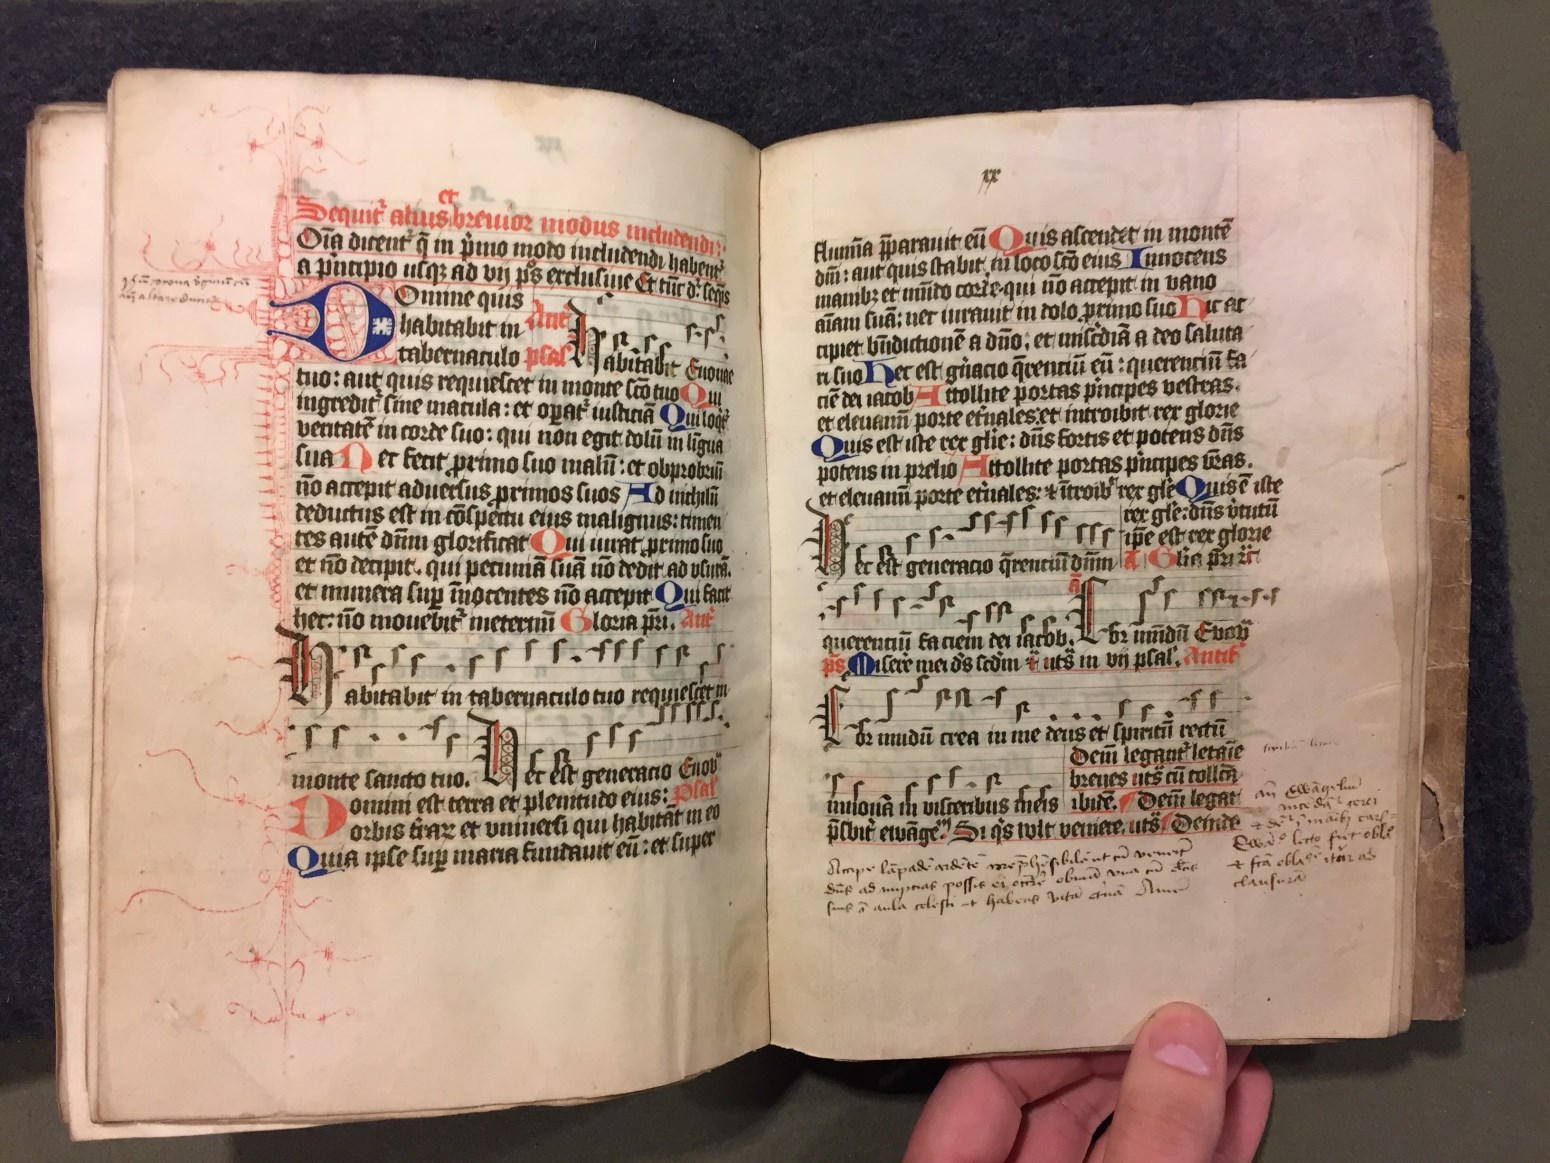 et
Sequit᷑ alius brevior modus includendi:
Oīa dicent᷑ q̄ in p̄mo modo includendi habent᷑
a p̄ncipio usqꝫ ad vij ps̄ exclusive Et tūc d᷑r seq̄ns
Domine quis
habitabit in Ant
tabernaculo psal Habitabit Euouae
tuo: aut quis requiescet in monte sc̄o tuo Qui
ingredit᷑ sine macula: et op̄at᷑ iusticiā Qui loqt᷑
veritatē in corde suo: qui non egit dolū in līgua
sua Nec fecit ꝓximo suo malū: et obprobriū
nō accepit adversus proximos suos Ad nichilū
deductus est in cōspectu eius malignus: timen
tes autē dn̄m glorificat Qui iurat ꝓximo suo
et nō decipit. qui pecuniā suā nō dedit ad vsurā.
et munera sup̄ īnocentes nō accepit Qui facit
hec: nō movebit᷑ ineternū Gloria p̄ri. Ant᷑
Habitabit in tabernaculo tuo requiescet in
monte sancto tuo. Hec est generacio Euou
Domini est terra et plenitudo eius: Psal
orbis t̄rar̄ et vniversi qui habitāt in eo
Quia ipse sup̄ maria fundavit eū: et super
xx
flumīa p̄paravit eū Quis ascendet in montē
dn̄i: aut quis stabit in loco sc̄o eius Innocens
manibꝫ et mūdo corde qui nō accepit in vano
aīam suā: nec iuravit in dolo ꝓximo suo Hic ac
cipiet bn̄dictionē a dn̄o: et misc̄diā a deo saluta
ri suo Hec est gn̄acio q̄rentiū eū: querentiū fa
ciē dei iacob Attollite portas p̄ncipes vestras.
et elevam̄ porte et̄nales: et introibit rex glorie
Quis est iste rex gl̄ie: dn̄s fortis et potens dn̄s
potens in prelio Attollite portas p̄ncipes vr̄as.
et elevam̄ porte et̄nales: et ītroib᷑ rex gl̄e Quis ē iste
rex gl̄e: dn̄s v̄tutū
ip̄e est rex glorie
Hec est generacio q̄rentiū dn̄m a Gl̄ia p̄ri
querentiū faciem dei iacob. a Cor mūdū Euou
ps̄ Miserē mei ds̄ scdm̄ uts̄ in vij psal. Antif᷑
Cor mūdū crea in me deus et spiritū rectū
innova in visceribus meis
Deīn legant᷑ letaīe
breves uts̄ cū collcā
ibidē. Deīn legat
p̄sbit᷑ ewāge᷑ Si q̄s vult venire. uts̄ Deinde
Accipe lāpadē ardētē irrep̄hēsibilē ut cū venerit
dn̄s ad nuptias possis ei occ᷑re obviā una cū
in aula celesti et habeas vitā et̄nā Amē
clausurā